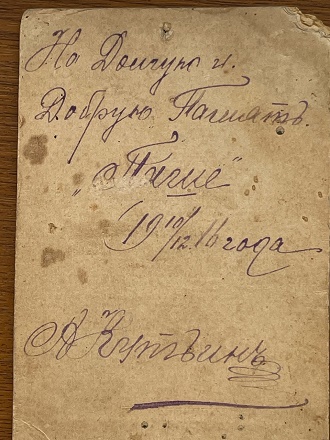 На Долгую и.
Добрую Память.
„Тагие"
19 10/12 16 года
А Кутьинъ